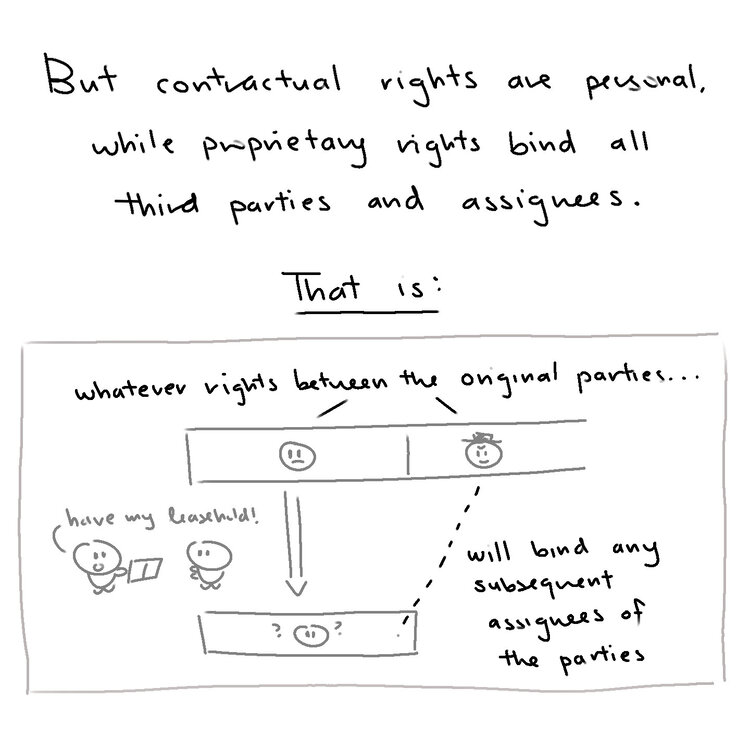 But contractual rights are personal,
while proprietary rights bind all
third parties and assignees.
That is:
whatever rights between the original parties...
have my leasehold!
will bind any
subsequent
assignees of
the parties
? ?